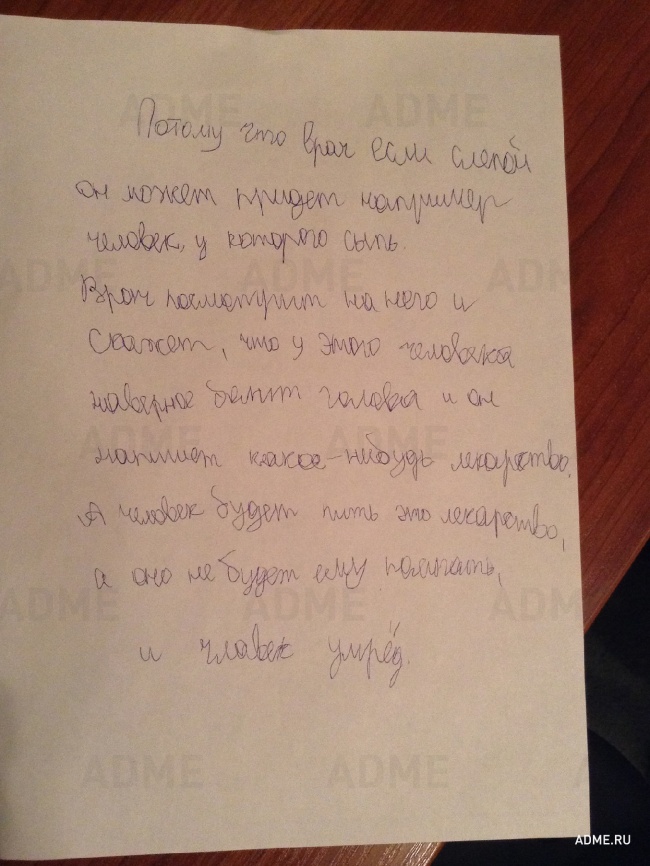 Потому что врач если слепой
он может придет например
человек, у которого сыпь.
Врач посмотрит на него и
скажет, что у этого человека
наверное болит голова и он
напишет какое-нибудь лекарство.
А человек будет пить это лекарство,
а оно не будет ему помагать,
и чловек умрёд.
ADME.RU